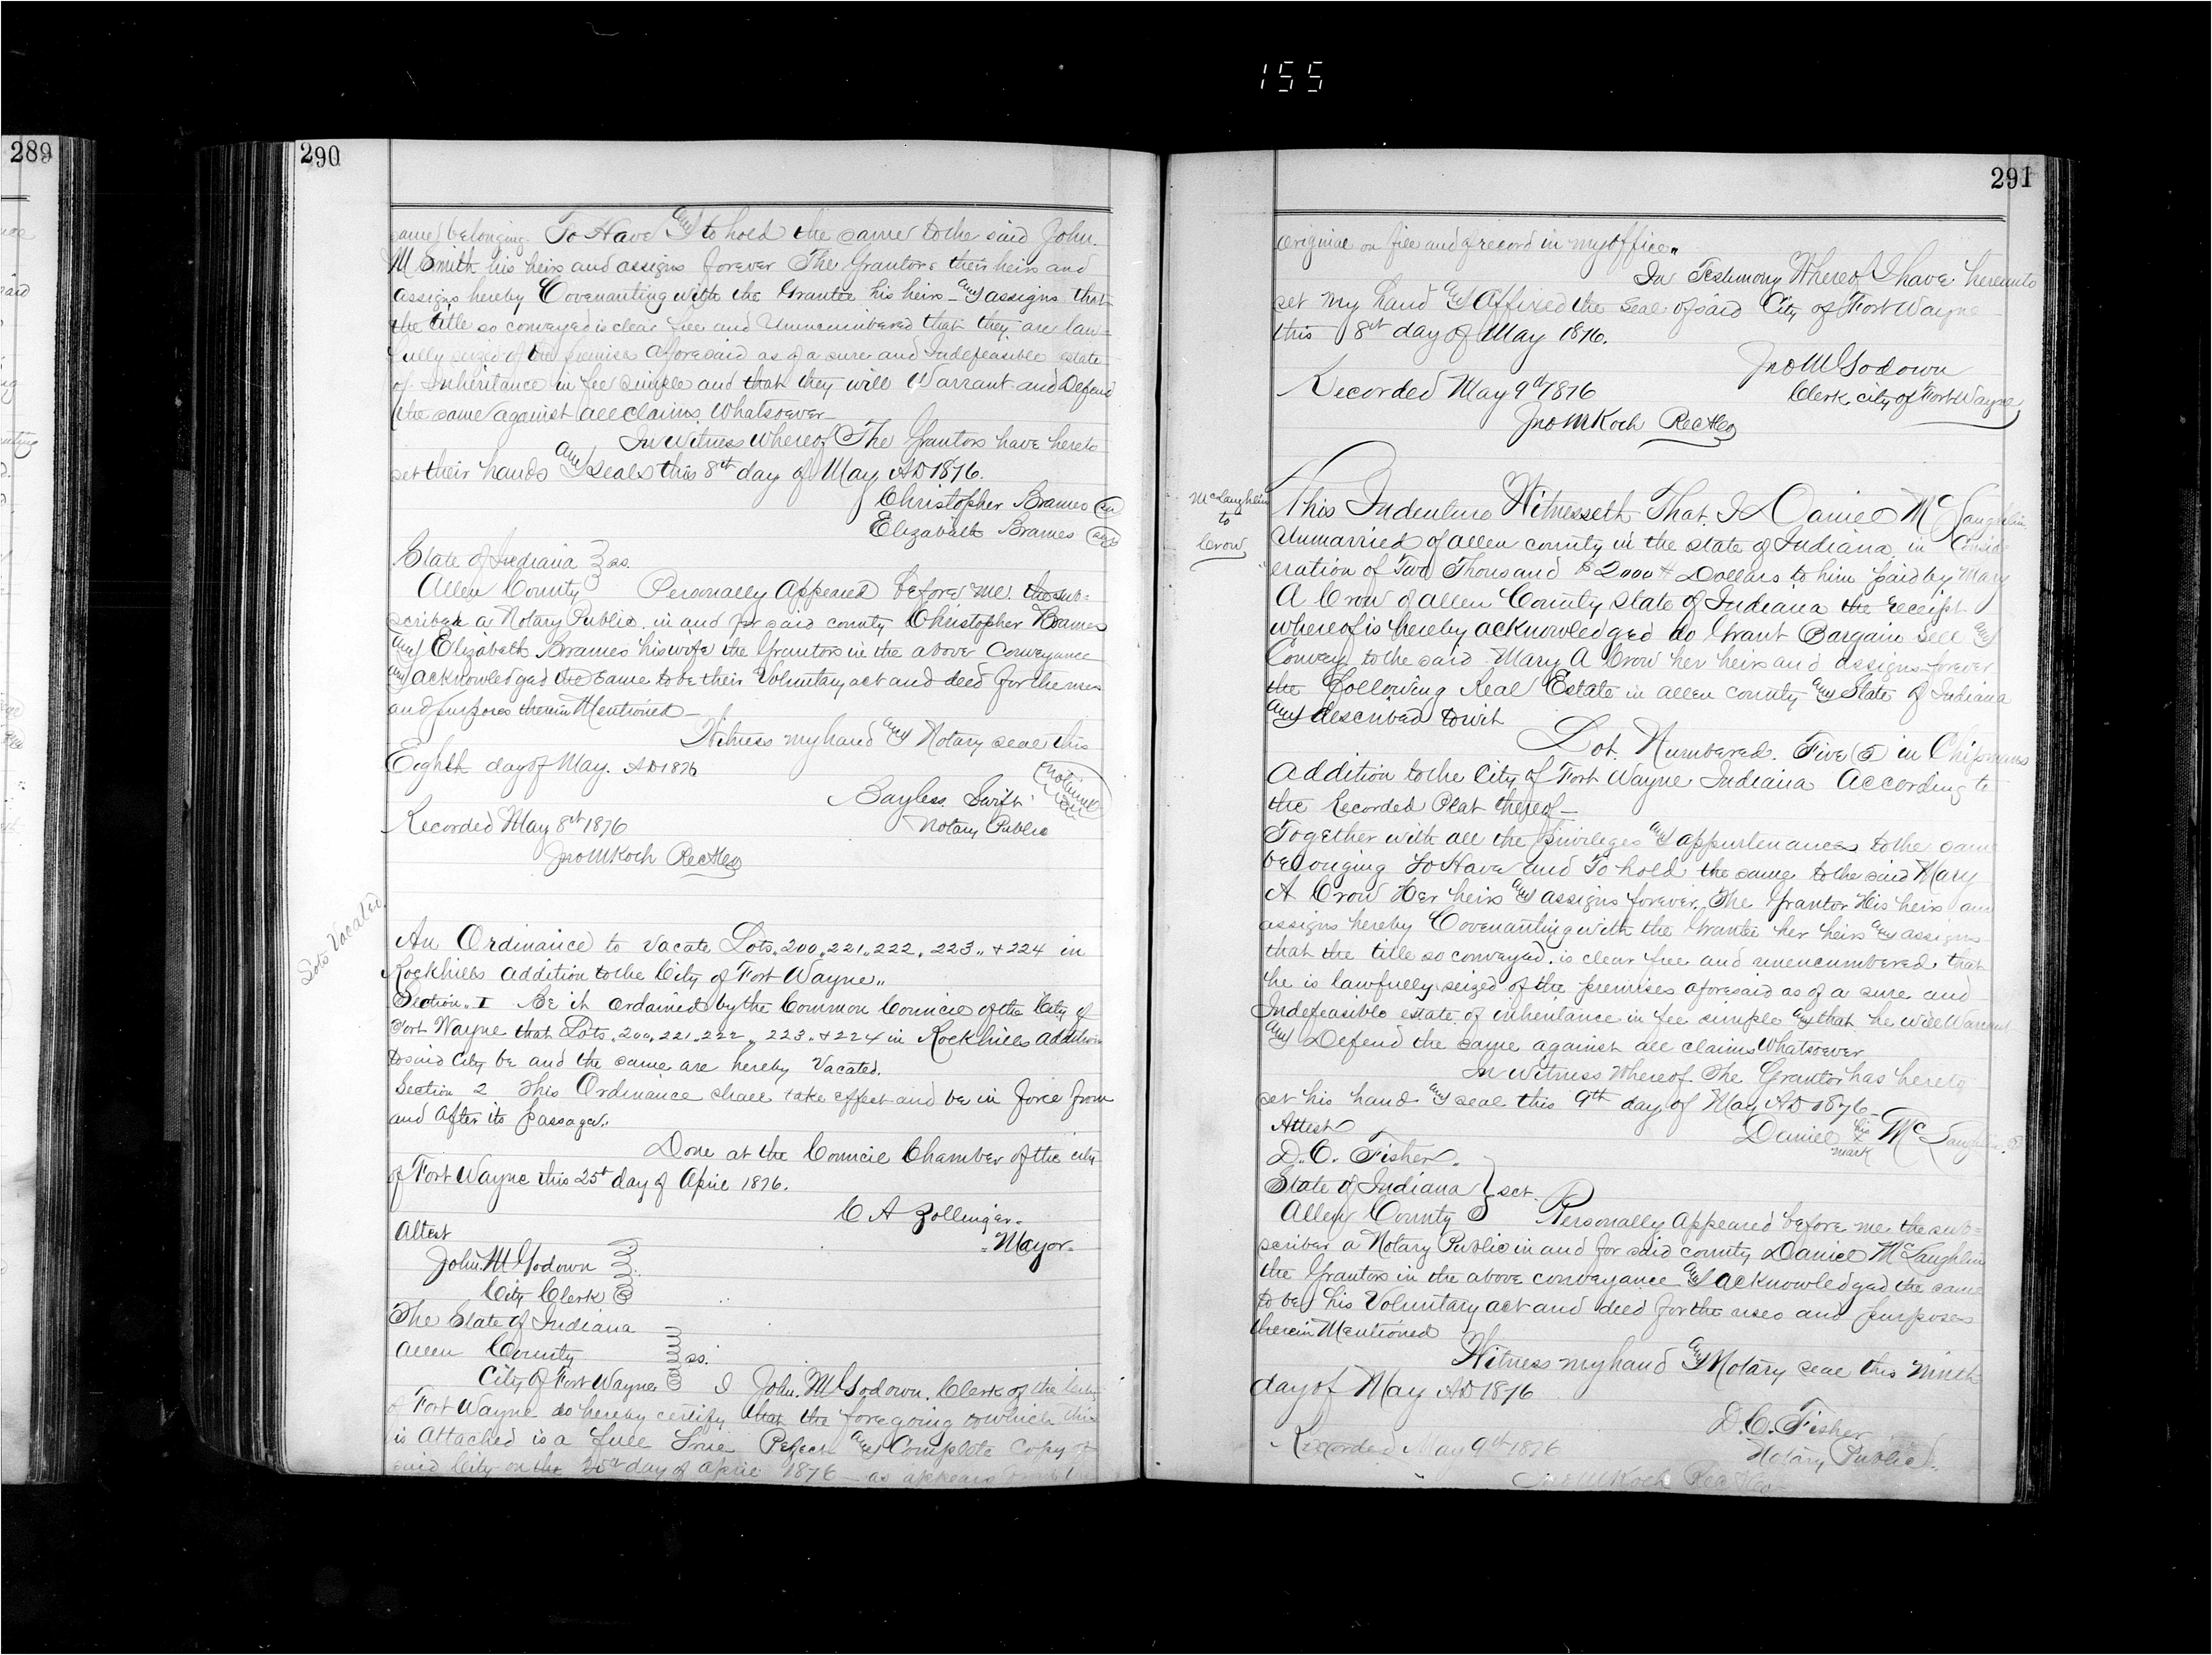 155
289
290
same belonging. To Have and to hold the same to the said John.
M Smith his heirs and assigns forever The Grantors their heirs and
assigns hereby Covenanting with the Grantee his heirs and assigns that
the title so conveyed is clear free and Unencumbered that they are law=
fully seized of the premises aforesaid as of a sure and Indefeasible estate
of Inheritance in fee simple and that they will Warrant and Defend
the same against all claims Whatsoever
In Witness Whereof The Grantors have hereto
set their hands and seals this 8th day of May AD 1876.
Christopher Brames
Elizabeth Brames
State of Indiana } ss.
Allen County Personally Appeared before me the sub=
scriber a Notary Public in and for said county Christopher Brames
and Elizabeth Brames his wife the Grantors in the above Conveyance
and acknowledged the same to be their Voluntary act and deed for the uses
and purposes therein Mentioned
Witness my hand and Notary seal this
Eighth day of May. AD 1876
Bayless Swift
Notary Public
Recorded May 8th 1876
Jno M Koch Rec A Co
Lots Vacated
An Ordinance to Vacate Lots, 200, 221, 222, 223, & 224 in
Rockhills Addition to the City of Fort Wayne,,
Section,, I Be it ordained by the Common Council of the City of
Fort Wayne that Lots, 200, 221, 222, 223, & 224 in Rockhills Addition
to said City be and the same are hereby Vacated.
Section 2 This Ordinance shall take effect and be in force from
and after its passage,
Done at the Council Chamber of the city
of Fort Wayne this 25th day of April 1876.
C A Zollinger.
=Mayor=
Attest
John. M Godown
City Clerk
The State of Indiana
Allen County } ss.
City of Fort Wayne I John. M Godown. Clerk of the City
of Fort Wayne do hereby certify that the foregoing to which this
is Attached is a full True Perfect and Complete Copy of
said City on the 25th day of April 1876 as appears from the
291
original on file and of record in my office,,
In Testimony Whereof I have hereunto
set my hand and Affixed the Seal of said City of Fort Wayne
this 8th day of May 1876.
Jno M Godown
Clerk, city of Fort Wayne
Recorded May 9th 1876
Jno M Koch Rec A Co
McLaughlin
to
Crow
This Indenture Witnesseth That. I Daniel McLaughlin
Unmarried of Allen county in the state of Indiana in Consid
eration of Two Thousand $2000 Dollars to him paid by Mary
A Crow of Allen County State of Indiana the receipt
whereof is hereby acknowledged do Grant Bargain Sell and
Convey to the said Mary A Crow her heirs and assigns forever
the following Real Estate in Allen county and State of Indiana
and described to wit
Lot. Numbered. Five (5) in Chipmans
Addition to the City of Fort Wayne Indiana According to
the Recorded Plat thereof
Together with all the privileges and appurtenances to the same
belonging To Have and To hold the same to the said Mary
A Crow Her heirs and assigns forever. The Grantor His heirs and
assigns hereby Covenanting with the Grantee her heirs and assigns
that the title so conveyed. is clear free and unencumbered. that
he is lawfully seized of the premises aforesaid as of a sure and
Indefeasible estate of inheritance in fee simple and that he will Warrant
and Defend the same against all claims Whatsoever
In Witness Whereof The Grantor has hereto
set his hand and seal this 9th day of May AD 1876
Attest Daniel his x mark McLaughlin
D. C. Fisher.
State of Indiana } sct.
Allen County Personally Appeared before me the sub=
scriber a Notary Public in and for said county Daniel McLaughlin
the Grantors in the above conveyance and acknowledged the same
to be his Voluntary act and deed for the uses and purposes
therein Mentioned
Witness my hand and Notary seal this ninth
day of May AD 1876
D. C. Fisher
Notary Public.
Recorded May 9th 1876
Jno M Koch Rec A Co